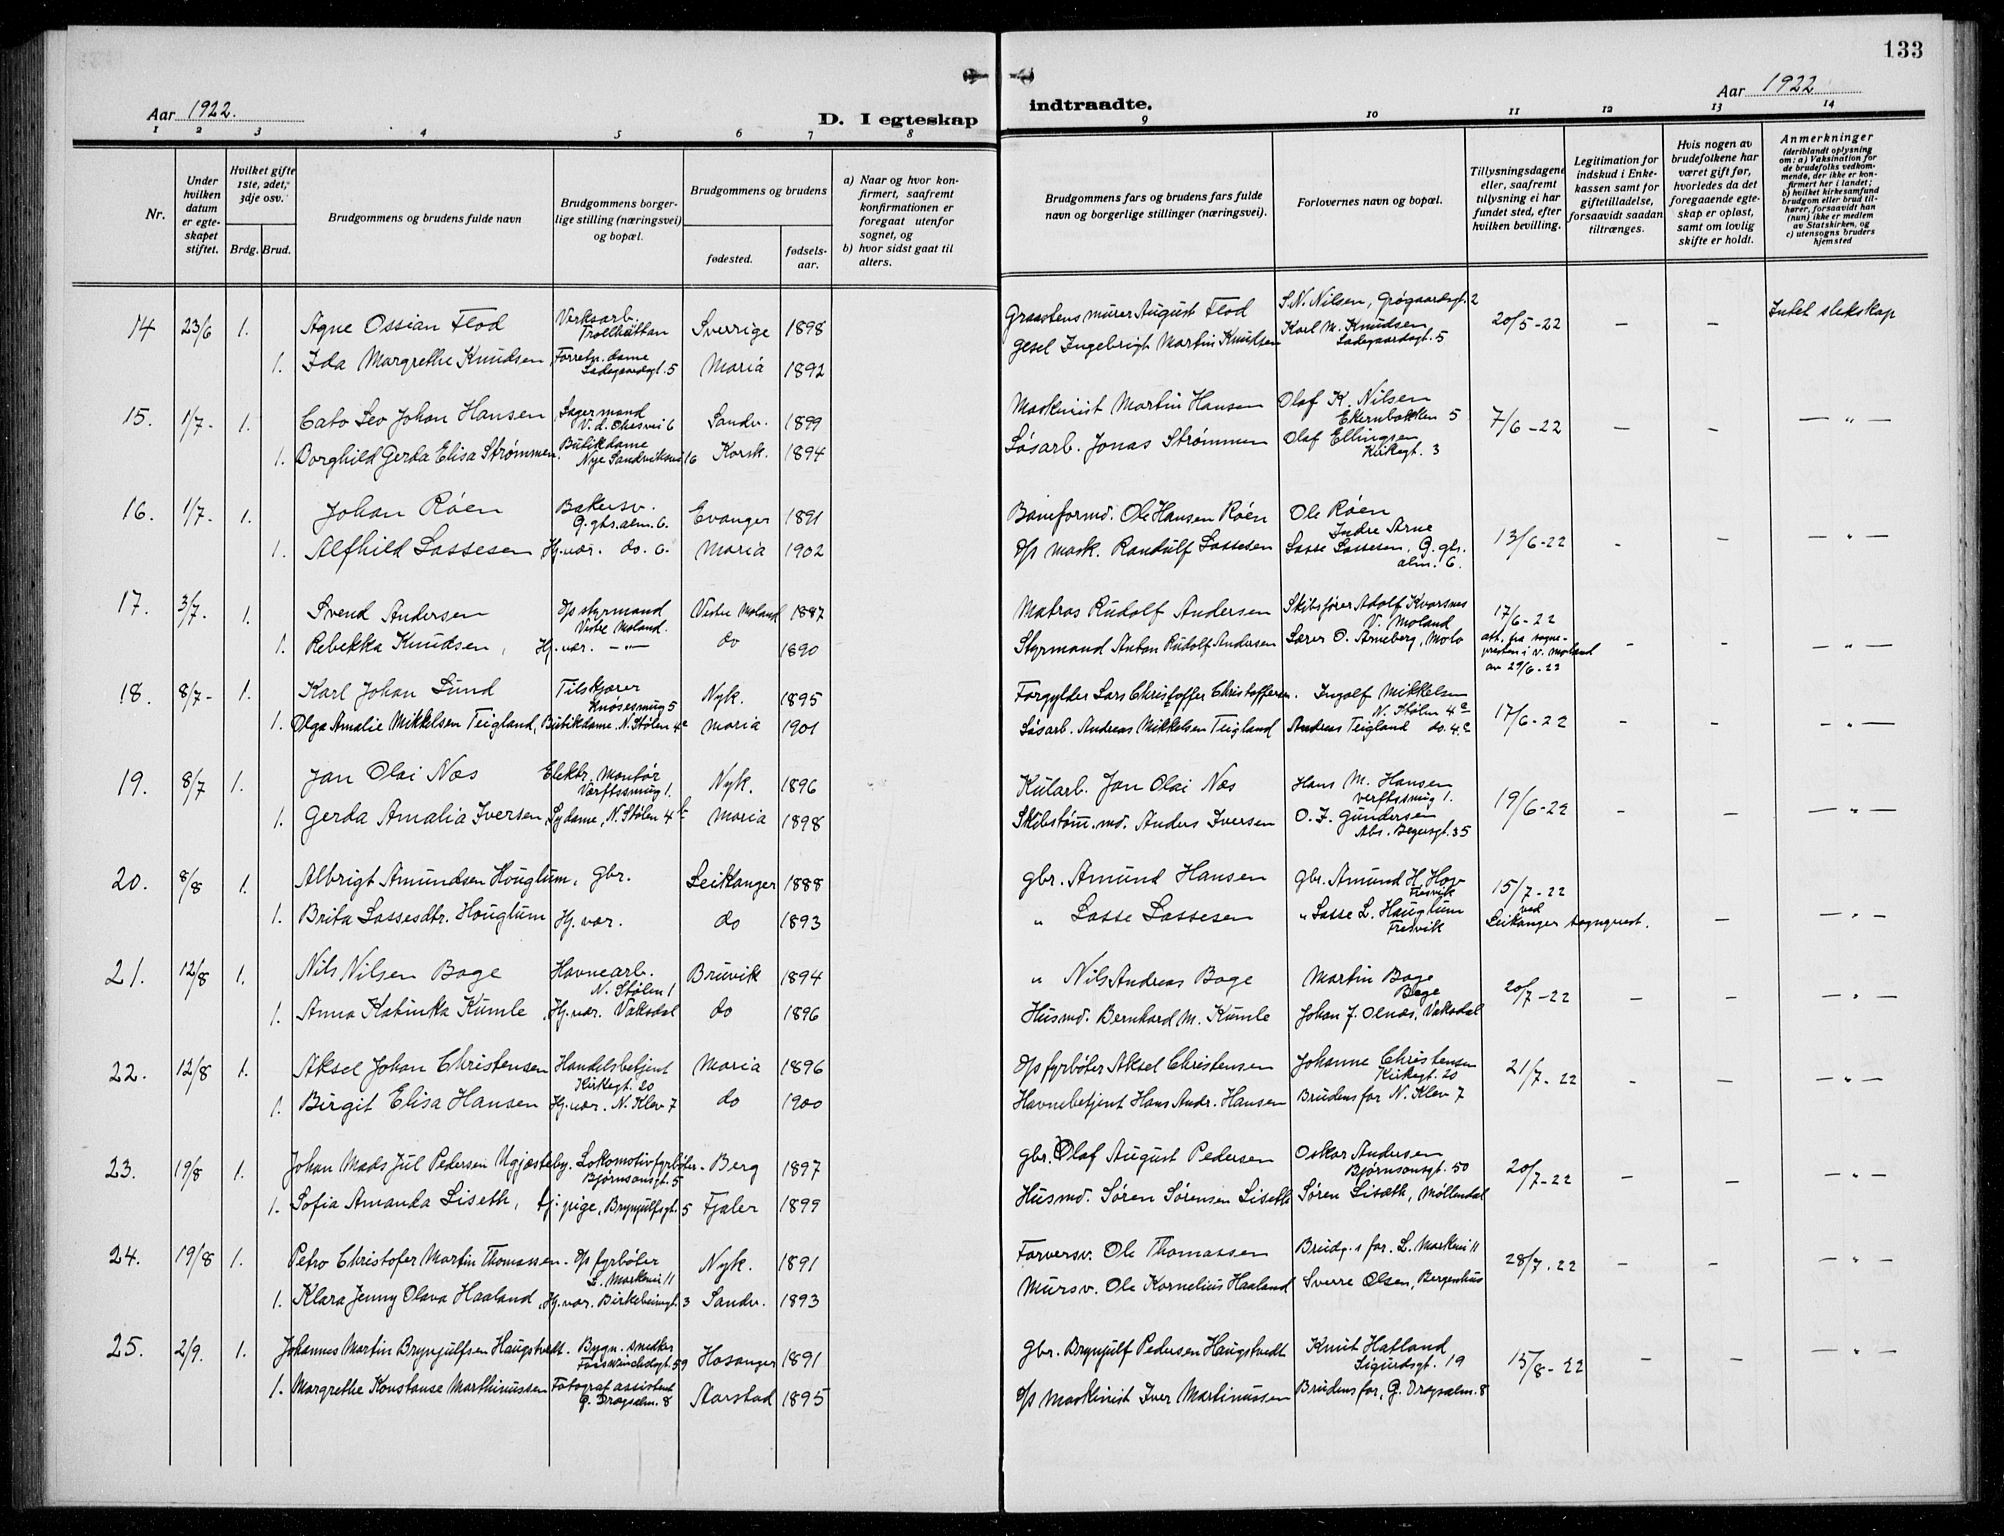 133
Aar 1922.
D. I egteskap
indtraadte.
Aar 1922
1 2 3 4 5 6 7 8
9 10 11 12 13 14
Nr.
Under hvilken datum er egteskapet stiftet.
Hvilket gifte 1ste, 2det, 3dje osv.
Brdg. Brud.
Brudgommens og brudens fulde navn
Brudgommens borgerlige stilling (næringsvei) og bopæl.
Brudgommens og brudens
fødested.
fødselsaar.
a) Naar og hvor konfirmert, saafremt konfirmationen er foregaat utenfor sognet, og
b) hvor sidst gaat til alters.
Brudgommens fars og brudens fars fulde navn og borgerlige stillinger (næringsvei).
Forlovernes navn og bopæl.
Tillysningsdagene eller, saafremt tillysning ei har fundet sted, efter hvilken bevilling.
Legitimation for indskud i Enkekassen samt for giftetilladelse, forsaavidt saadan tiltrænges.
Hvis nogen av brudefolkene har været gift før, hvorledes da det foregaaende egteskap er opløst, samt om lovlig skifte er holdt.
Anmerkninger (deriblandt oplysning om: a) Vaksination for de brudefolks vedkommende, der ikke er konfirmert her i landet; b) hvilket kirkesamfund brudgom eller brud tilhører, forsaavidt han (hun) ikke er medlem av Statskirken, og c) utensogns bruders hjemsted
14 23/6 1. Agne Ossian Flod Verksarb. Trollhättan Sverrige 1898 Graastensmurer August Flod S. N. Nilsen, Grøgaardsgt. 2 20/5-22 — — Intet slekskap
1. Ida Margrethe Knudsen, Forretn. dame Ladegaardsgt. 5 Maria 1892 Gesel Ingebrigt Martin Knudsen Karl M. Knudsen Ladegaardsgt. 5
15. 1/7- 1. Cato Leo Johan Hansen Lagermand V. d. Ohesvei 6 Sandv. 1899 Maskinist Martin Hansen Olaf K. Nilsen Ekernbakken 5 7/6-22 — — — " —
1. Borghild Gerda Elisa Strømmen. Butikdame Nye Sandviksvei 16 Korsk. 1894 Løsarb. Jonas Strømmen Olaf Ellingsen Kirkegt. 3
16. 1/7- 1. Johan Røen Bakersv. G. gbs. alm. 6. Evanger 1891 Baneformd. Ole Hansen Røen Ole Røen Indre Arne 13/6-22 - — — " —
1. Alfhild Lassesen Hj. vær. do. 6. Maria 1902 D/s mask. Randulf Lassesen Lasse Lassesen, G. gbs. alm. 6.
17. 3/7. 1. Svend Andersen D/s styrmand Vestre Moland. Vestre Moland 1887 Matros Rudolf Andersen Skibsfører Adolf Kvarsnes V. Moland 17/6-22
1. Rebekka Knudsen, Hj. vær. —"— do 1890 Styrmand Anton Rudolf Andersen Lærer O. Arneberg, Molo att. fra sogne-presten i V. Moland av 29/6-22 - - — " —
18. 8/7- 1. Karl Johan Lund Tilskjærer Knøsesmug 5 Nyk. 1895 Forgylder Lars Christoffer Christoffersen. Ingolf Mikkelsen N. Stølen 4c 17/6-22 - - — " —
1. Olga Amalie Mikkelsen Teigland, Butikdame. N. Stølen 4c Maria 1901 Løsarb. Andreas Mikkelsen Teigland Andreas Teigland do. 4c
19. 8/7 1. Jan Olai Næs Elektr. Montør Værftssmug 1. Nyk. 1896 Kularb. Jan Olai Næs Hans M. Hansen Verftssmug 1. 19/6-22 - — — " —
1. Gerda Amalia Iversen, Sydame, N. Stølen 4b Maria 1898 Skibstøm.md. Anders Iversen O. J. Gundersen Abs. Beyersgt. 35
20. 8/8 1. Albrigt Amundsen Houglum, gbr. Leikanger 1888 gbr. Amund Hansen gbr. Amund H. Hov Fresvik 15/7-22 ved
1. Brita Lassesdtr. Houglum Hj. vær. do 1893 " Lasse Lassesen " Lasse L. Hauglum Fresvik Leikanger sogneprest. — — " —
21. 12/8 1. Nils Nilsen Boge Havnearb. N. Stølen 1 Bruvik 1894 " Nils Andreas Boge Martin Boge Boge 20/7-22 — — — " —
1. Anna Katinka Kumle, Hj. vær. Vaksdal do 1896 Husmd. Bernhard M. Kumle Johan J. Olnæs, Vaksdal
22. 12/8 1. Aksel Johan Christensen Handelsbetjent Kirkegt. 20 Maria 1896 D/s fyrbøter Aksel Christensen Johanne Christensen Kirkegt. 20 21/7-22 - — — " —
1. Birgit Elisa Hansen Hj. vær. N. Klev 7 do 1900 Havnebetjent Hans Andr. Hansen Brudens far N. Klev 7
23. 19/8 1. Johan Mads Jul Pedersen Ugjæsteby. Lokomotivfyrbøter. Bjørnsonsgt. 5 Berg 1897 gbr. Olaf August Pedersen Oskar Andersen Bjørnsonsgt. 50 20/7-22 — — — " —
1. Sofia Amanda Liseth, tj. pige, Brynjulfsgt. 5 Fjaler 1899 Husmd. Søren Sørensen Liseth Søren Lisæth, Møllendal
24. 19/8 1. Petro Christofer Martin Thomassen. D/s fyrbøter L. Markevei 11 Nyk. 1891 Farversv. Ole Thomassen Brudg.s far. L. Markevei 11 28/7.22 — — — " —
1. Klara Jenny Olava Haaland, Hj. vær. Birkebeinsgt. 3 Sandv. 1893 Mursv. Ole Kornelius Haaland Sverre Olsen, Bergenhus
25. 2/9. 1. Johannes Martin Brynjulfsen Haugstvedt. Bygn. snedker Fosswinckelsgt. 59 Hosanger 1891 gbr. Brynjulf Pedersen Haugstvedt Knut Hatland Sigurdsgt. 19 15/8-22 — — — " —
1. Margrethe Konstanse Marthinussen Fotograf assistent G. Dragsalm. 8 Aarstad 1895 D/s Maskinist Iver Martinussen Brudens far, G. Dragsalm. 8